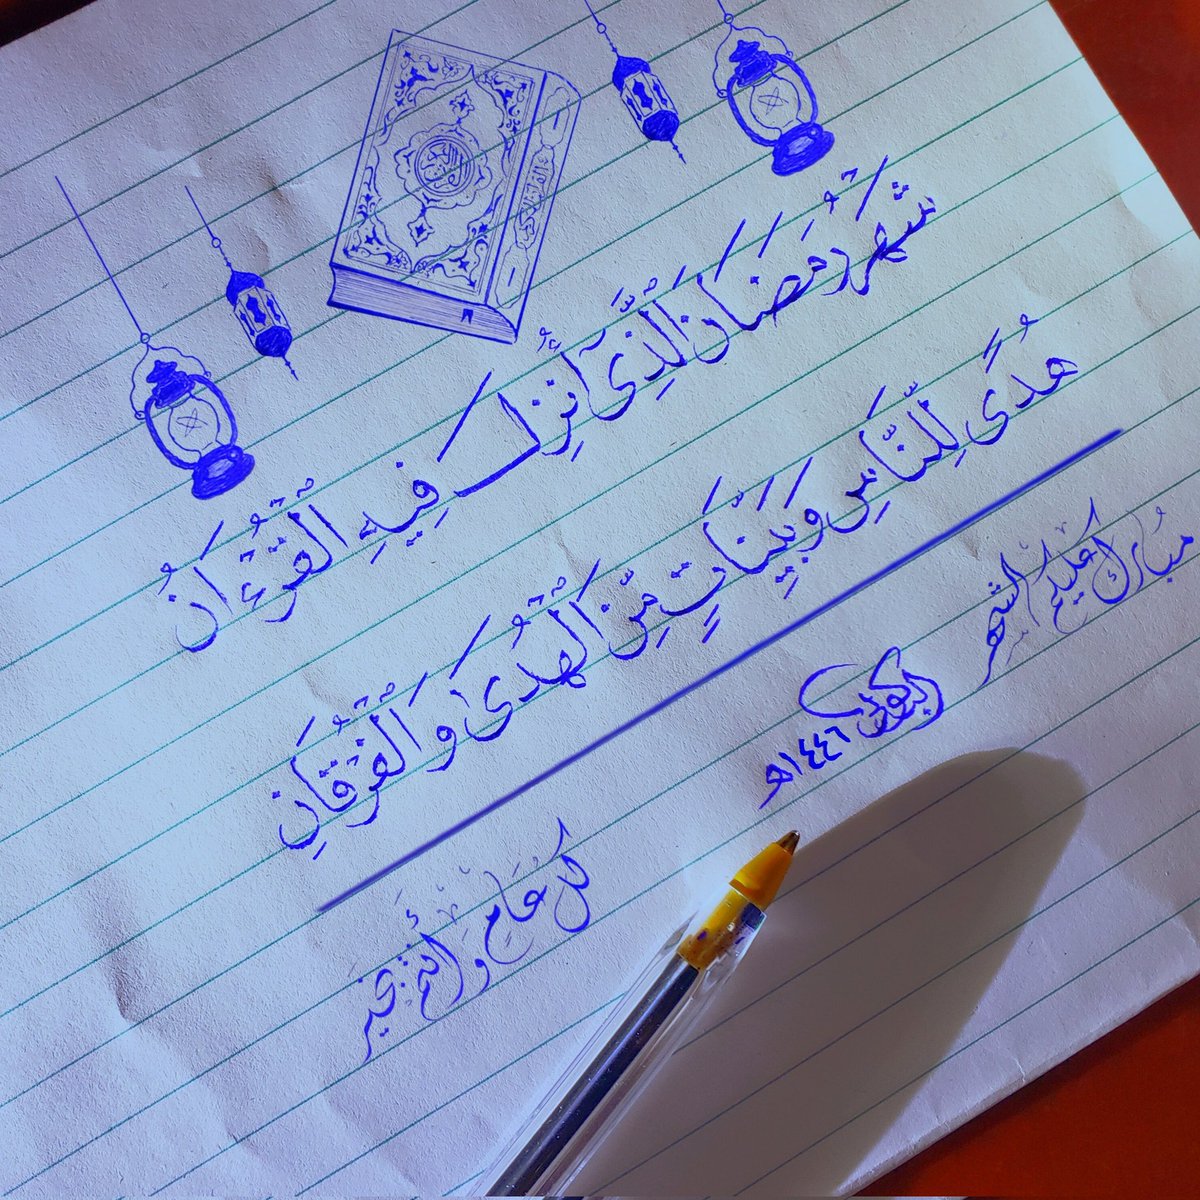 شَهْرُ رَمَضَانَ الَّذِىٓ أُنزِلَ فِيهِ الْقُرْءَانُ
هُدًى لِّلنَّاسِ وَبَيِّنَاتٍ مِّنَ الْهُدَىٰ وَالْفُرْقَانِ
مُبارك عليكم الشهر
١٤٤٦هـ
كل عَامٍ وَأَنتُم بخير